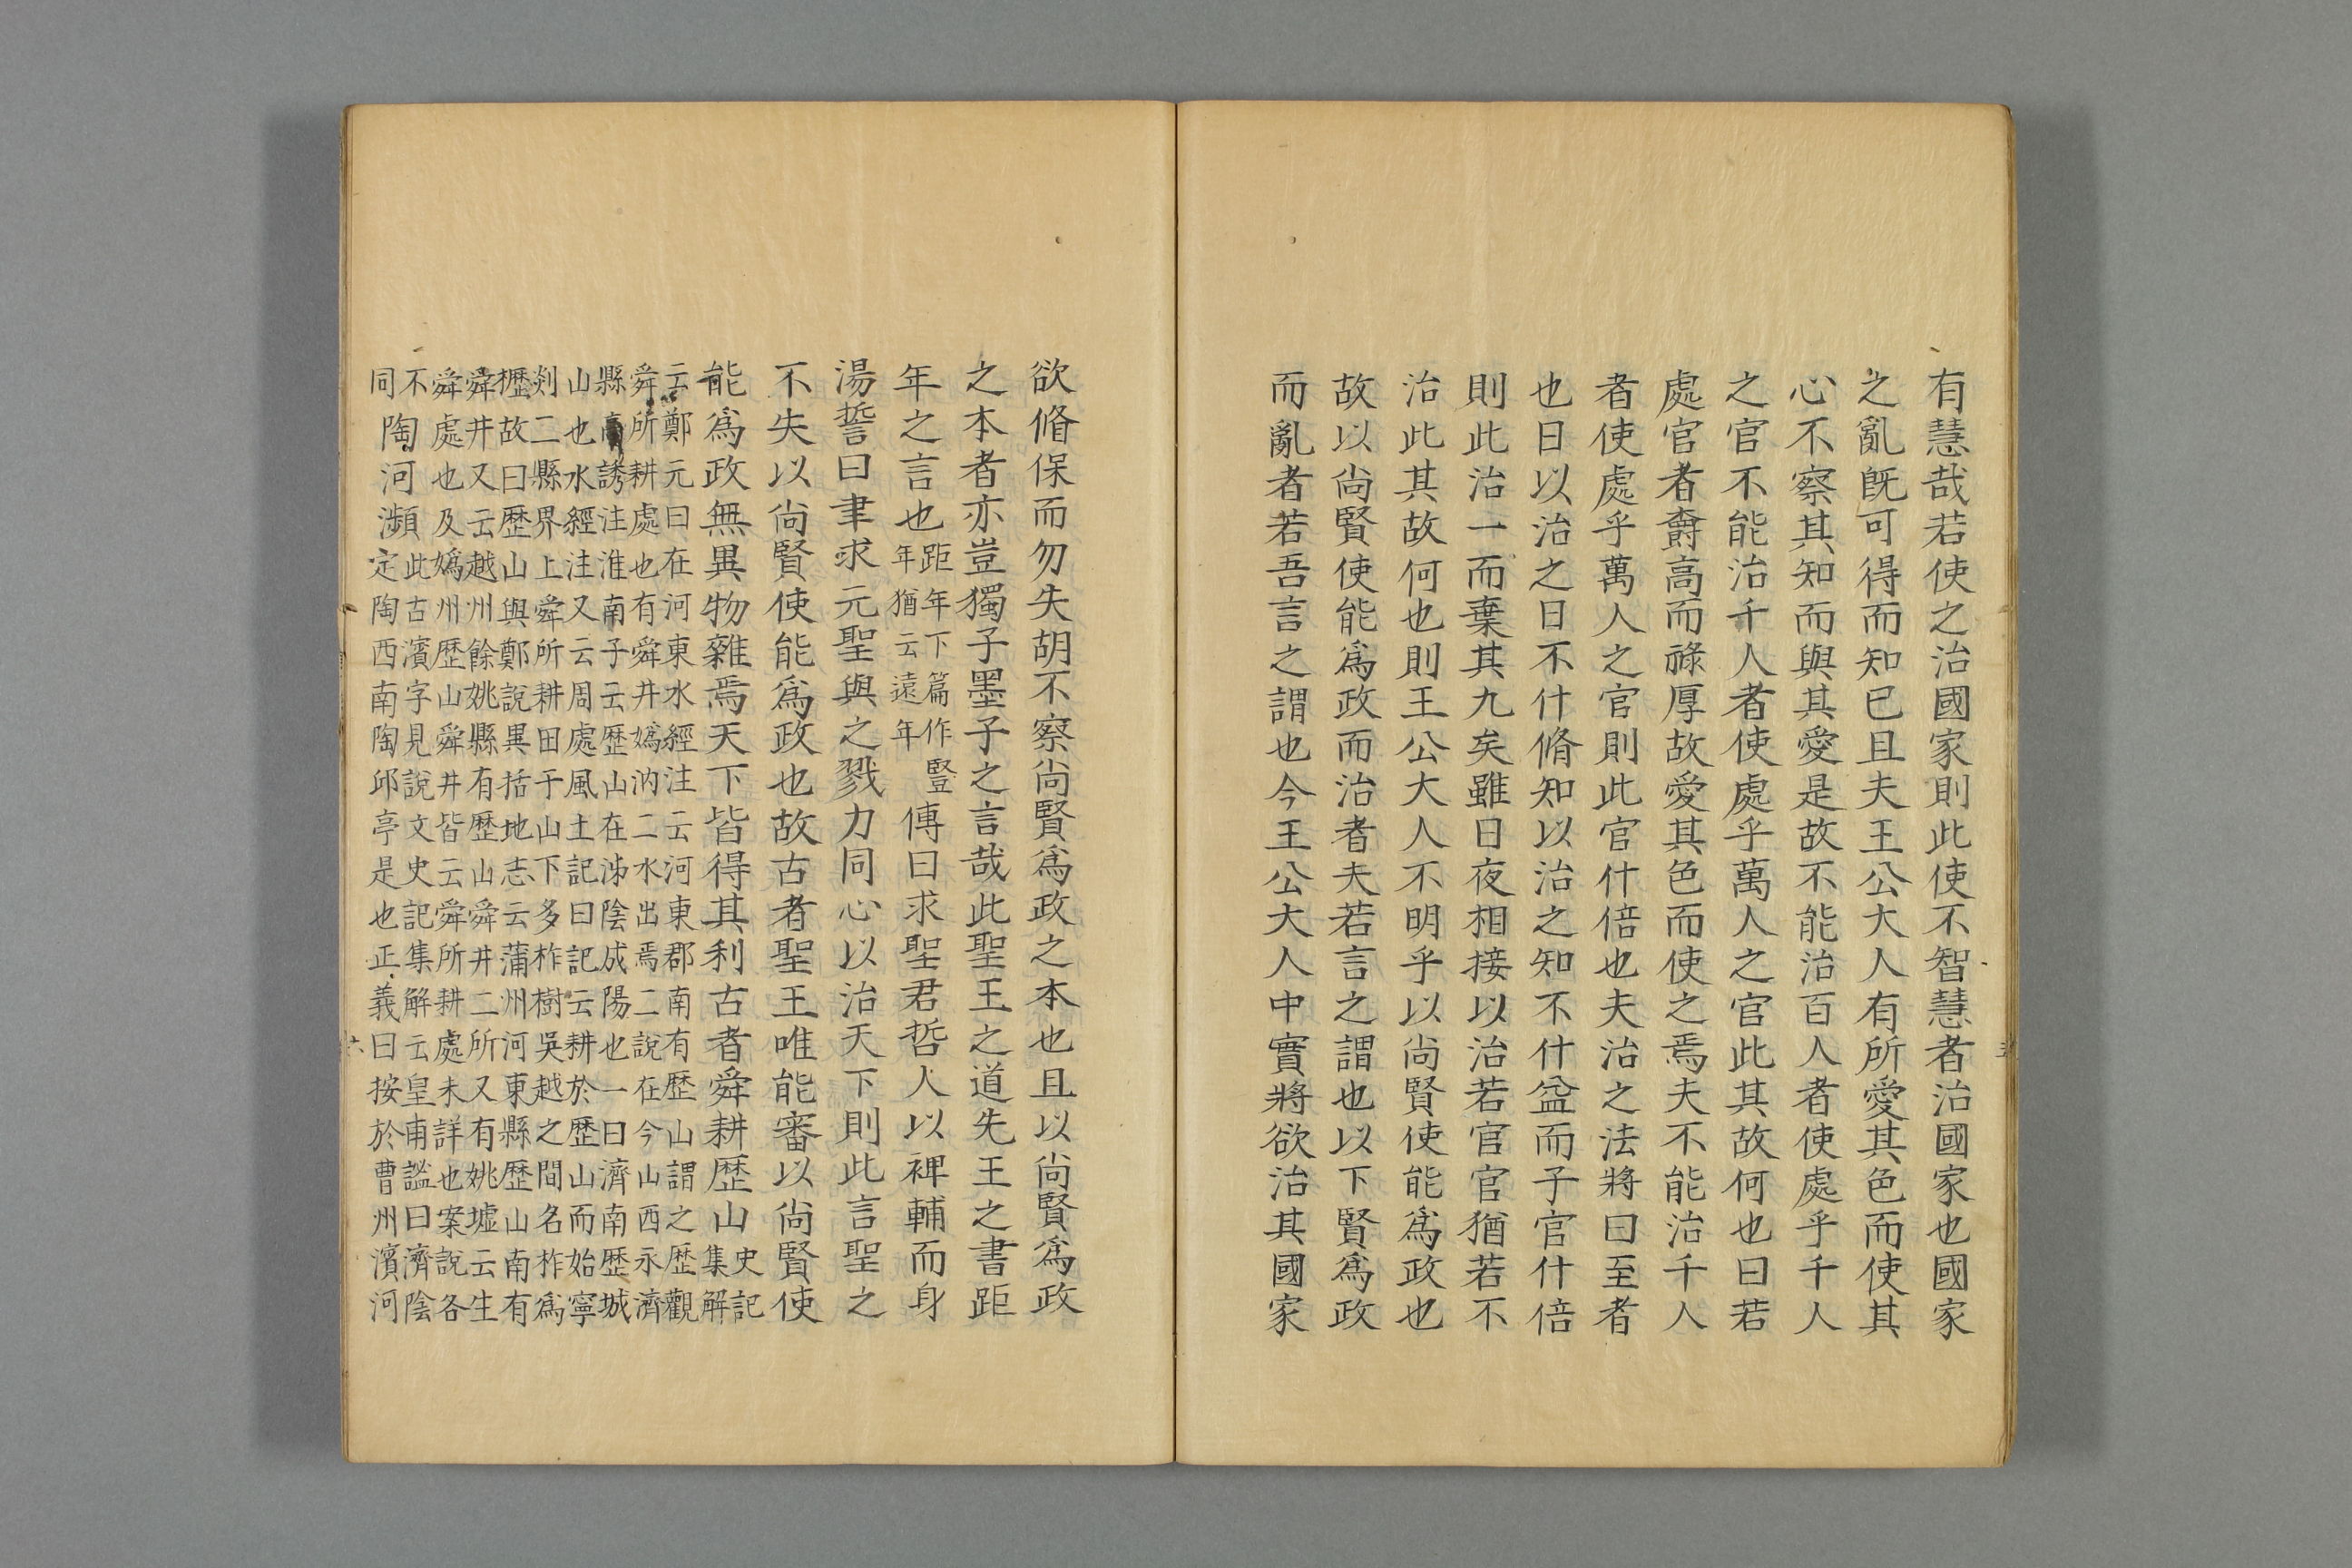 有慧哉若使之治國家則此使不智慧者治國家也國家
之亂旣可得而知已且夫王公大人有所愛其色而使其
心不察其知而與其愛是故不能治百人者使處乎千人
之官不能治千人者使處乎萬人之官此其故何也曰若
處官者爵高而祿厚故愛其色而使之焉夫不能治千人
者使處乎萬人之官則此官什倍也夫治之法將曰至者
也日以治之日不什脩知以治之知不什益而子官什倍
則此治一而棄其九矣雖日夜相接以治若官官猶若不
治此其故何也則王公大人不明乎以尙賢使能爲政也
故以尙賢使能爲政而治者夫若言之謂也以下賢爲政
而亂者若吾言之謂也今王公大人中實將欲治其國家
欲脩保而勿失胡不察尙賢爲政之本也且以尙賢爲政
之本者亦豈獨子墨子之言哉此聖王之道先王之書距
年之言也距年下篇作豎年猶云遠年傳曰求聖君哲人以裨輔而身
湯誓曰聿求元聖與之戮力同心以治天下則此言聖之
不失以尙賢使能爲政也故古者聖王唯能審以尙賢使
能爲政無異物雜焉天下皆得其利古者舜耕歷山史記集解
云鄭元曰在河東水經注云河東郡南有歷山謂之歷觀
舜所耕處也有舜井嬀汭二水出焉二說在今山西永濟
縣高誘注淮南子云歷山在泲陰成陽也一曰濟南歷城
山也水經注又云周處風土記曰記云耕於歷山而始寧
剡二縣界上舜所耕田于山下多柞樹吳越之間名柞爲
櫪故曰歷山與鄭說異括地志云蒲州河東縣歷山南有
舜井又云越州餘姚縣有歷山舜井二所又有姚墟云生
舜處也及嬀州歷山舜井皆云舜所耕處未詳也案說各
不同陶河瀕此古濱字見說文史記集解云皇甫謐曰濟陰
定陶西南陶邱亭是也正義曰按於曹州濱河